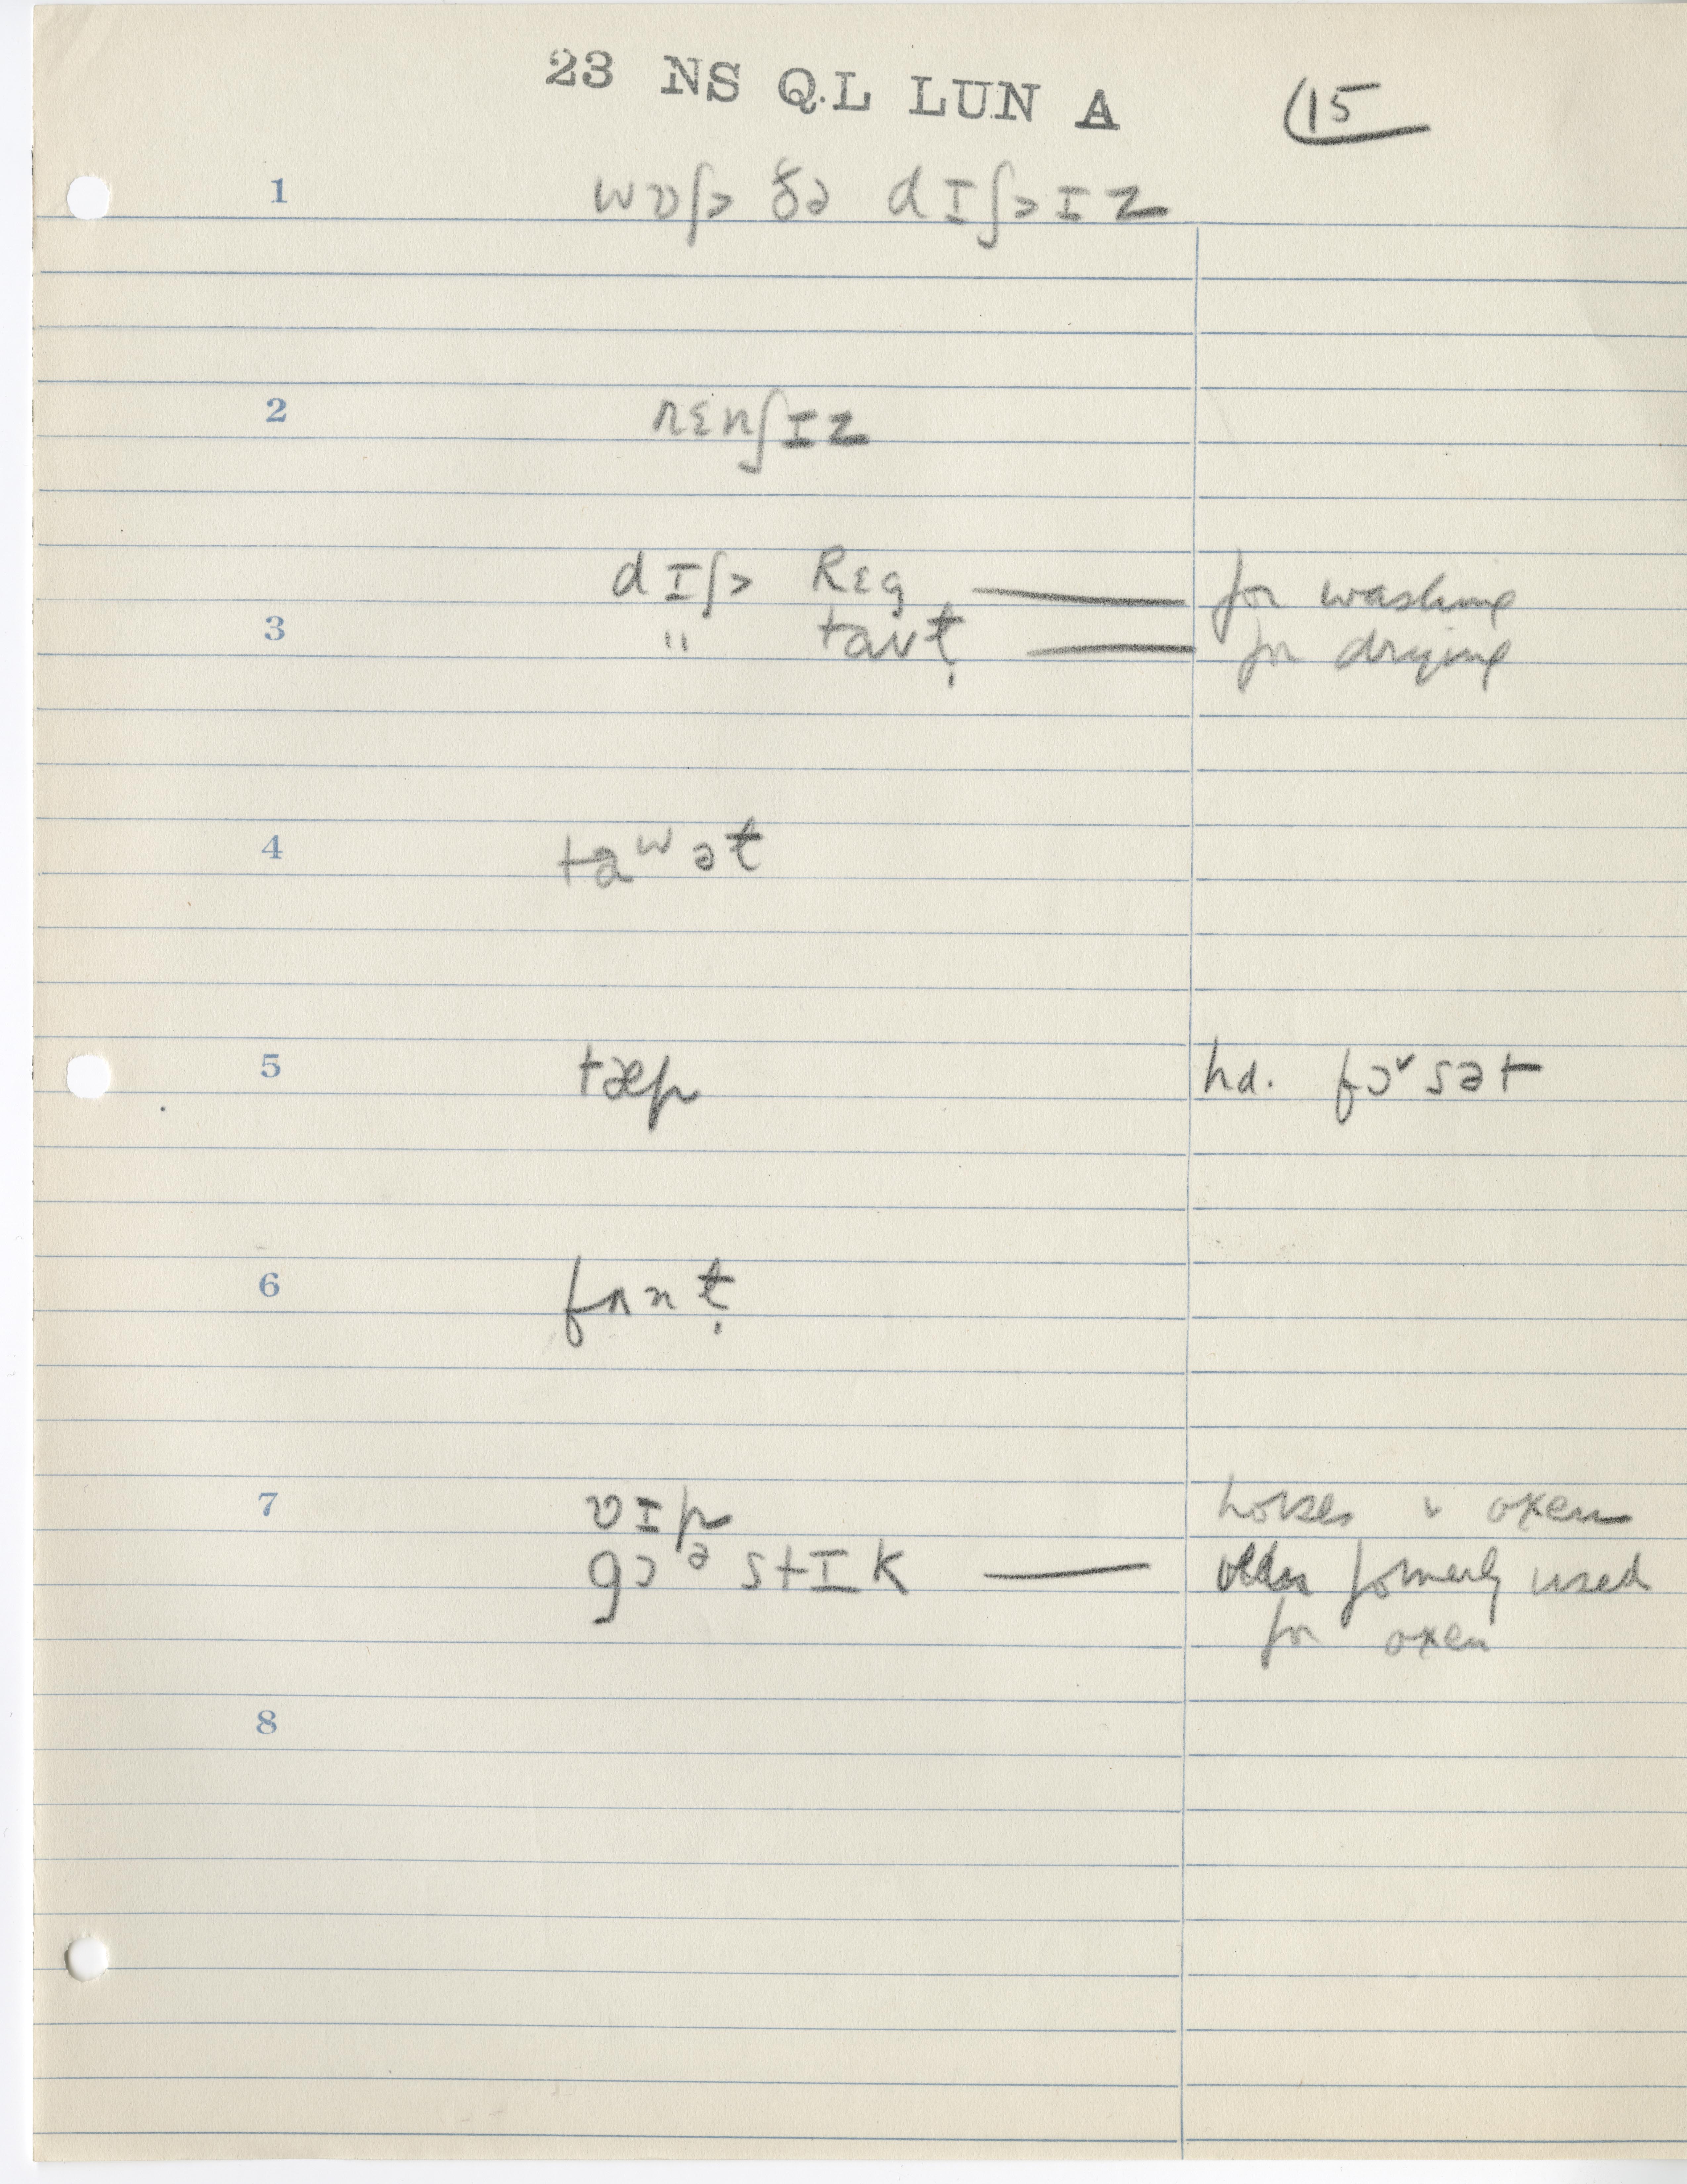 23 NS Q.L LUN A
(15
1 wʋʃ> ðə dɪʃ>ɪz
2 rɛnʃɪz
3 dɪʃ> Rɛg — for washing
" taʋt̬ — for drying
4 taʷət
5 tæp hd. fɔ˞sət
6 fʌnt̬
7 ʋɪp horses & oxen
gɔᵊ stɪk — older formerly used
for oxen
8